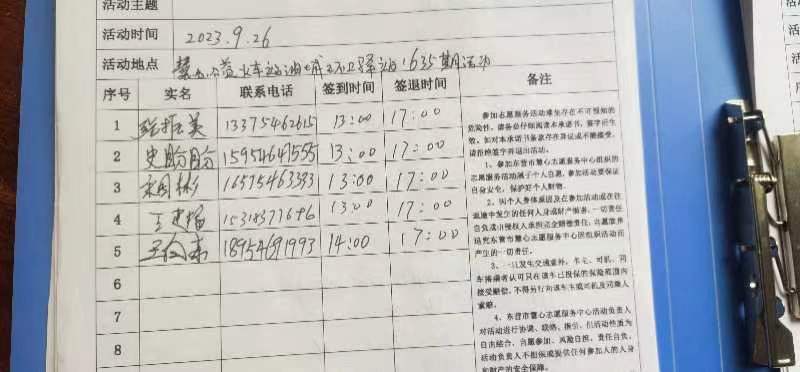 活动主题
活动时间 2023.9.26
活动地点 635期活动
序号 实名 联系电话 签到时间 签退时间 备注
1 张振美 13375462615 13:00 17:00
2 史盼盼 15954647555 13:00 17:00
3 彬 16575463333 13:00 17:00
4 王 13:00 17:00
5 18954691993 14:00 17:00
6
7
8
参加志愿服务活动难免存在不可预知的
危险性，请务必仔细阅读本承诺书，签字后生
效，如对本承诺书条款存在异议或不能接受，
请拒绝签字并退出活动。
1、参加东营市慧心志愿服务中心组织的
志愿服务活动属于个人自愿，参加活动要保证
自身安全，保护好个人财物。
2、因个人身体原因及在参加活动或在往
返途中发生的任何人身或财产损害，一切责任
自负或由侵权人承担完全赔偿责任，自愿放弃
追究东营市慧心志愿服务中心因组织活动而
产生的一切责任。
3、一旦发生交通意外，车主、司机、同
车搭乘者认可只在该车已投保的保险范围内
接受赔偿，不得另行向该车车主或司机及同乘人
索赔。
4、东营市慧心志愿服务中心活动负责人
对活动进行协调、联络、指引，但活动性质为
自由结合、自愿参加、风险自担、责任自负，
活动负责人不担保或提供任何参加人的人身
和财产的安全保障。